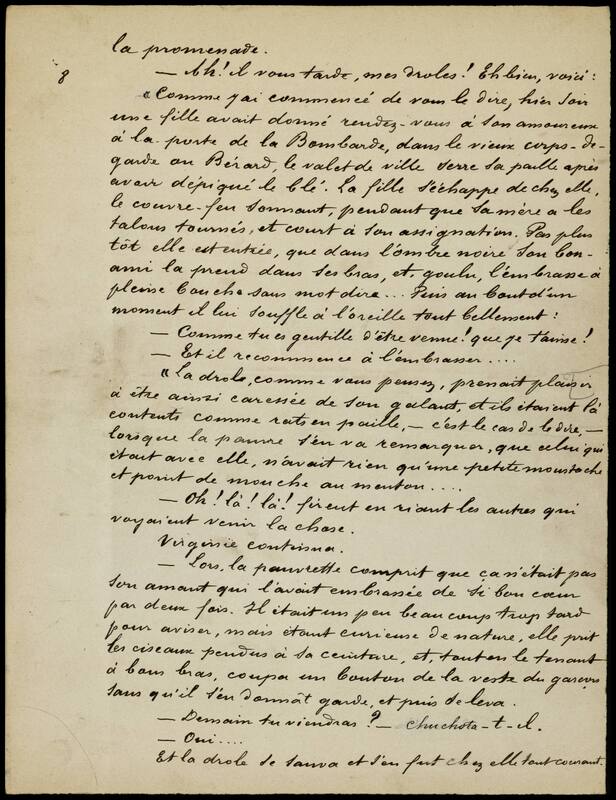 la promenade.
8
— Ah! il vous tarde, mes droles! Eh bien, voici:
"Comme j'ai commencé de vous le dire, hier soir
une fille avait donné rendez-vous à son amoureux
à la porte de la Bombarde, dans le vieux corps-de-
garde où Bérard, le valet de ville serre sa paille après
avoir dépiqué le blé. La fille s'échappe de chez elle,
le couvre-feu sonnant, pendant que sa mère a les
talons tournés, et court à son assignation. Pas plus
tôt elle est entrée, que dans l'ombre noire son bon-
ami la prend dans ses bras, et goulu, l'embrasse à
pleine bouche sans mot dire... Puis au bout d'un
moment il lui souffle à l'oreille tout bellement:
— Comme tu es gentille d'être venue! que je t'aime!
— Et il recommence à l'embrasser....
"La drole, comme vous pensez, prenait plaisir
à être ainsi caressée de son galant, et ils étaient là
contents comme rats en paille, — c'est le cas de le dire, —
lorsque la pauvre s'en va remarquer, que celui qui
était avec elle, n'avait rien qu'une petite moustache
et point de mouche au menton....
— Oh! là! là! firent en riant les autres qui
voyaient venir la chose.
Virginie continua.
— Lors, la pauvrette comprit que ça n'était pas
son amant qui l'avait embrassée de si bon cœur
par deux fois. Il était un peu beaucoup trop tard
pour aviser, mais étant curieuse de nature, elle prit
les ciseaux pendus à sa ceinture, et, tout en le tenant
à bons bras, coupa un bouton de la veste du garçon
sans qu'il s'en donnât garde, et puis se leva.
— Demain tu viendras? — chuchota-t-il.
— Oui....
Et la drole se sauva et s'en fut chez elle tout courant.